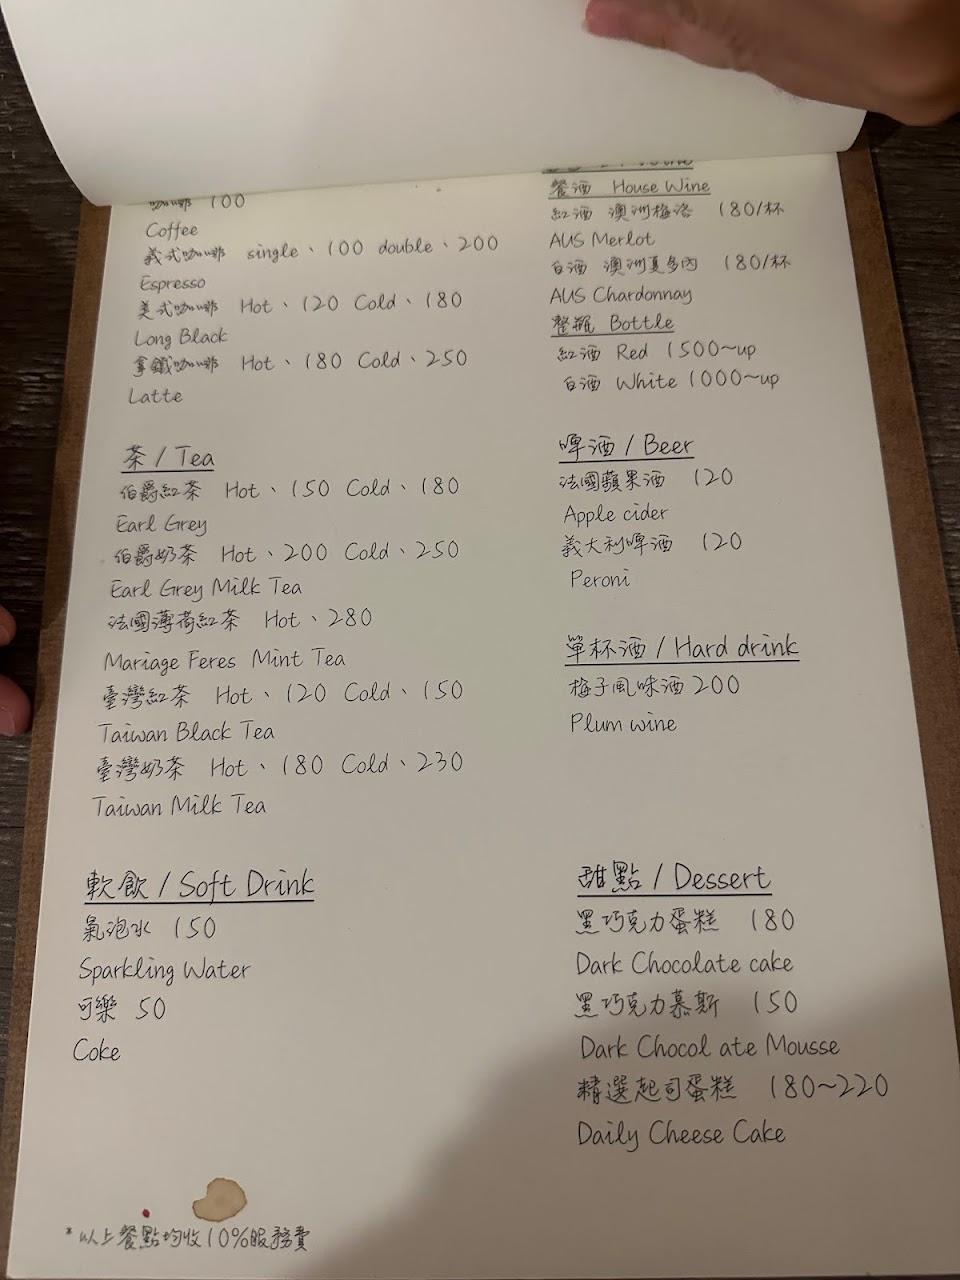 咖啡 100
Coffee
義式咖啡 single、100 double、200
Espresso
美式咖啡 Hot、120 Cold、180
Long Black
拿鐵咖啡 Hot、180 Cold、250
Latte
茶 / Tea
伯爵紅茶 Hot、150 Cold、180
Earl Grey
伯爵奶茶 Hot、200 Cold、250
Earl Grey Milk Tea
法國薄荷紅茶 Hot、280
Mariage Feres Mint Tea
臺灣紅茶 Hot、120 Cold、150
Taiwan Black Tea
臺灣奶茶 Hot、180 Cold、230
Taiwan Milk Tea
軟飲 / Soft Drink
氣泡水 150
Sparkling Water
可樂 50
Coke
餐酒 House Wine
紅酒 澳洲梅洛 180/杯
AUS Merlot
白酒 澳洲夏多內 180/杯
AUS Chardonnay
整瓶 Bottle
紅酒 Red 1500~up
白酒 White 1000~up
啤酒 / Beer
法國蘋果酒 120
Apple cider
義大利啤酒 120
Peroni
單杯酒 / Hard drink
梅子風味酒 200
Plum wine
甜點 / Dessert
黑巧克力蛋糕 180
Dark Chocolate cake
黑巧克力慕斯 150
Dark Chocol ate Mousse
精選起司蛋糕 180~220
Daily Cheese Cake
*以上餐點均收10%服務費